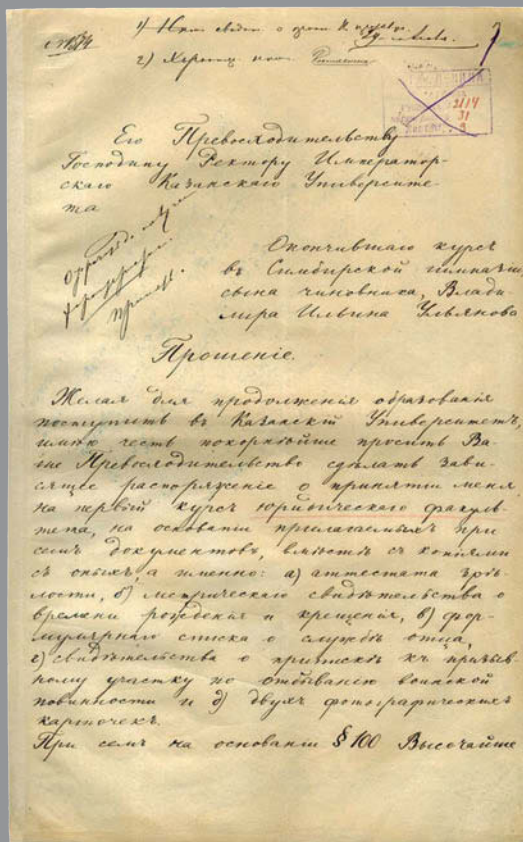 2)
Его Превосходительству
Господину Ректору Император-
скаго Казанскаго Университе-
та
Окончившаго курсъ
въ Симбирской гимназіи,
сына чиновника, Влади-
мира Ильина Ульянова
Прошеніе.
Желая для продолженія образованія
поступить въ Казанскій Университетъ,
имѣю честь покорнѣйше просить Ва-
ше Превосходительство сдѣлать зави-
сящее распоряженіе о принятіи меня
на первый курсъ юридическаго факуль-
тета, на основаніи прилагаемыхъ при
семъ документовъ, вмѣстѣ съ копіями
съ оныхъ, а именно: а) аттестата зрѣ-
лости, б) метрическаго свидѣтельства о
времени рожденія и крещенія, в) фор-
мулярнаго списка о службѣ отца,
г) свидѣтельства о припискѣ къ призыв-
ному участку по отбыванію воинской
повинности и д) двухъ фотографическихъ
карточекъ.
При семъ на основаніи § 100 Высочайше